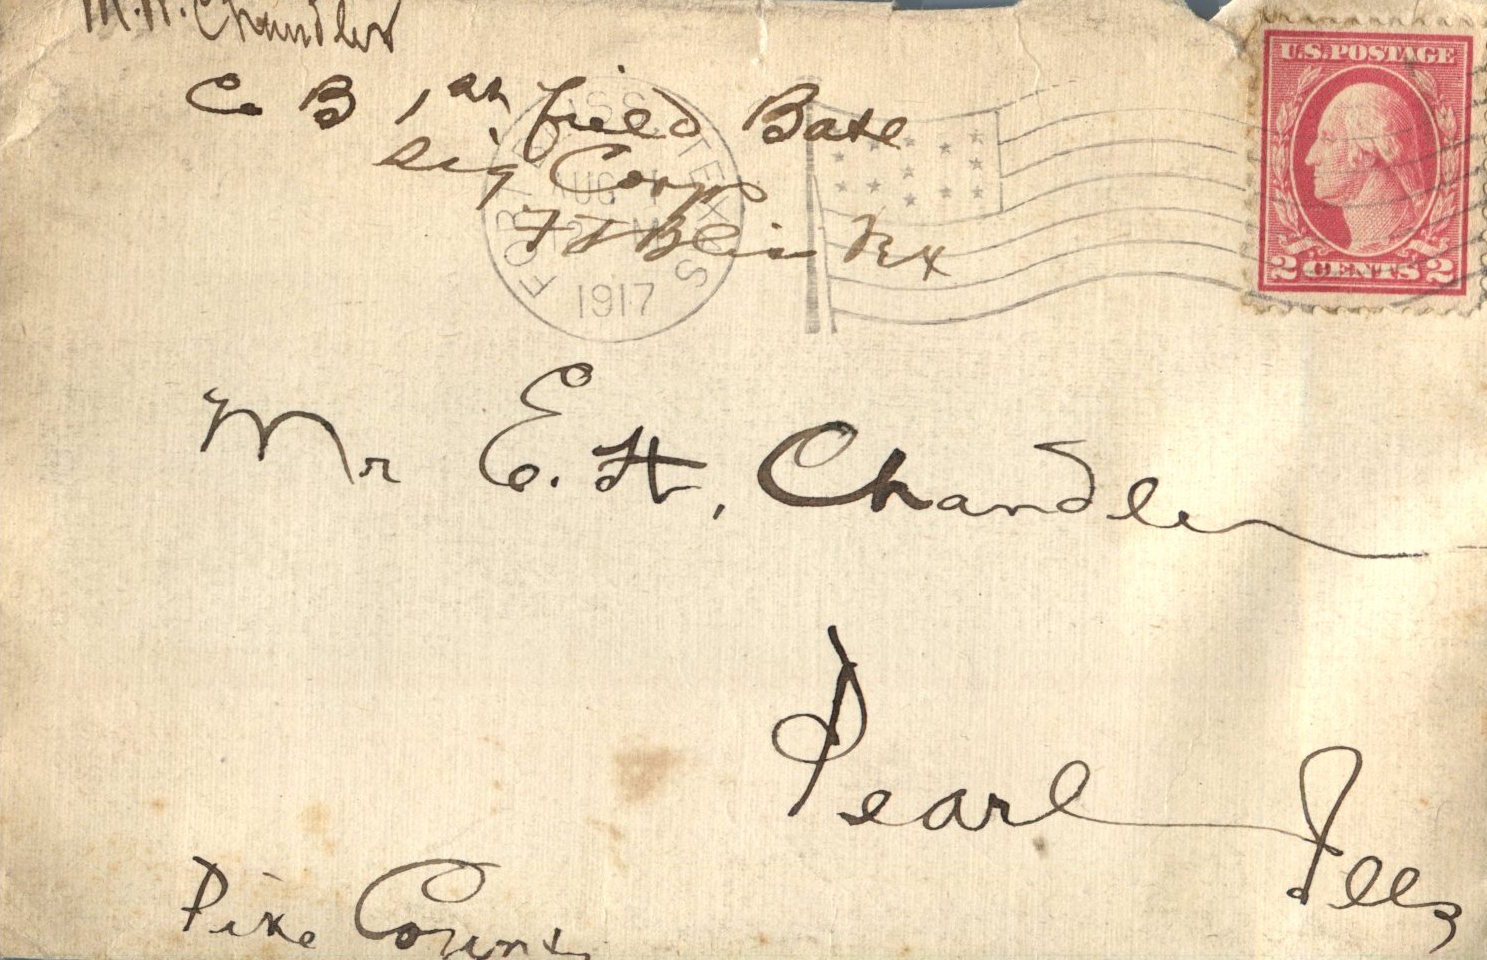 M. H. Chandler
Co B 1st field Batl
Sig Corps
Ft Bliss Tex
FORT BLISS TEXAS
AUG
1917
U.S. POSTAGE
2 CENTS 2
Mr E. H. Chandler
Pearl Ills
Pike County